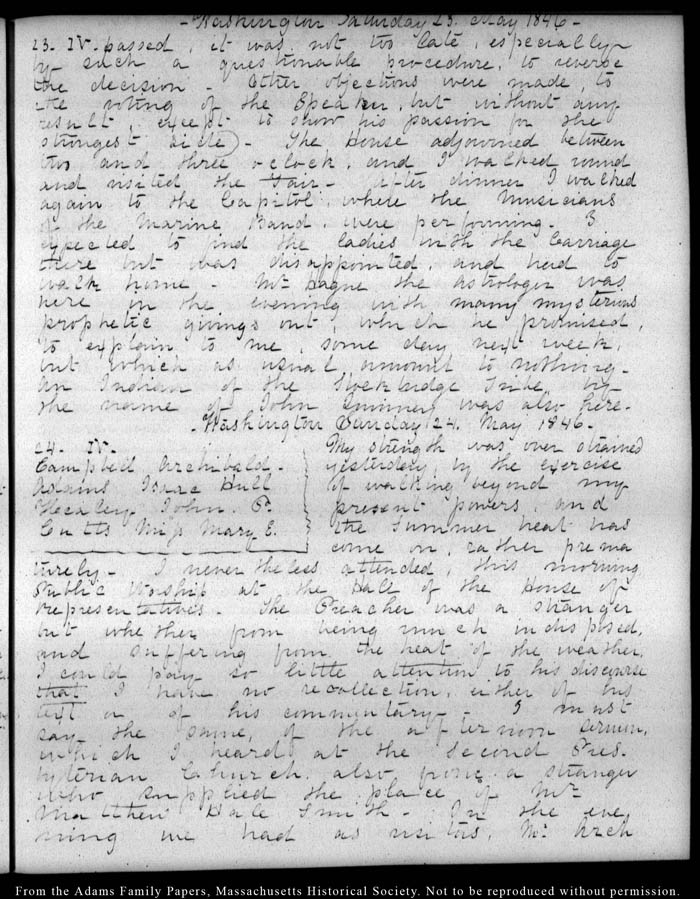 - Washington Saturday 23. May 1846 -
23. IV. passed, it was not too late, especially
by such a questionable procedure, to reverse
the decision - Other objections were made, to
the voting of the Speaker, but without any
result, except to show his passion for the
strongest side) - The House adjourned between
two and three o'clock, and I walked round
and visited the Fair - After dinner I walked
again to the Capitol, where the Musicians
of the Marine Band, were performing. I
expected to find the ladies with the Carriage
there but was disappointed, and had to
walk home - Mr Hague the astrologer was
here in the evening with many mysterious
prophetic givings out, which he promised,
to explain to me, some day next week,
but which as usual, amount to nothing -
an Indian of the Stockbridge Tribe, by
the name of John Quinney was also here -
- Washington Sunday 24. May 1846 -
24. IV.
Campbell Archibald -
Adams Isaac Hull
Healey John. P.
Cutts Miss Mary E.
My strength was over strained
yesterday, by the exercise
of walking beyond my
present powers, and
the Summer heat has
come on, rather prema
turely - I never theless attended, this morning
Public Worship at the Hall of the House of
Representatives - The Preacher was a stranger
but whether from being much indisposed,
and suffering from the heat of the weather,
I could pay so little attention to his discourse
that I have no recollection, either of his
text or of his commentary - I must
say the same, of the afternoon sermon,
which I heard at the Second Pres.
byterian Church, also from a stranger
who supplied the place of Mr
Matthew Hale Smith - In the eve
ning we had as visitors, Mr Arch
From the Adams Family Papers, Massachusetts Historical Society. Not to be reproduced without permission.